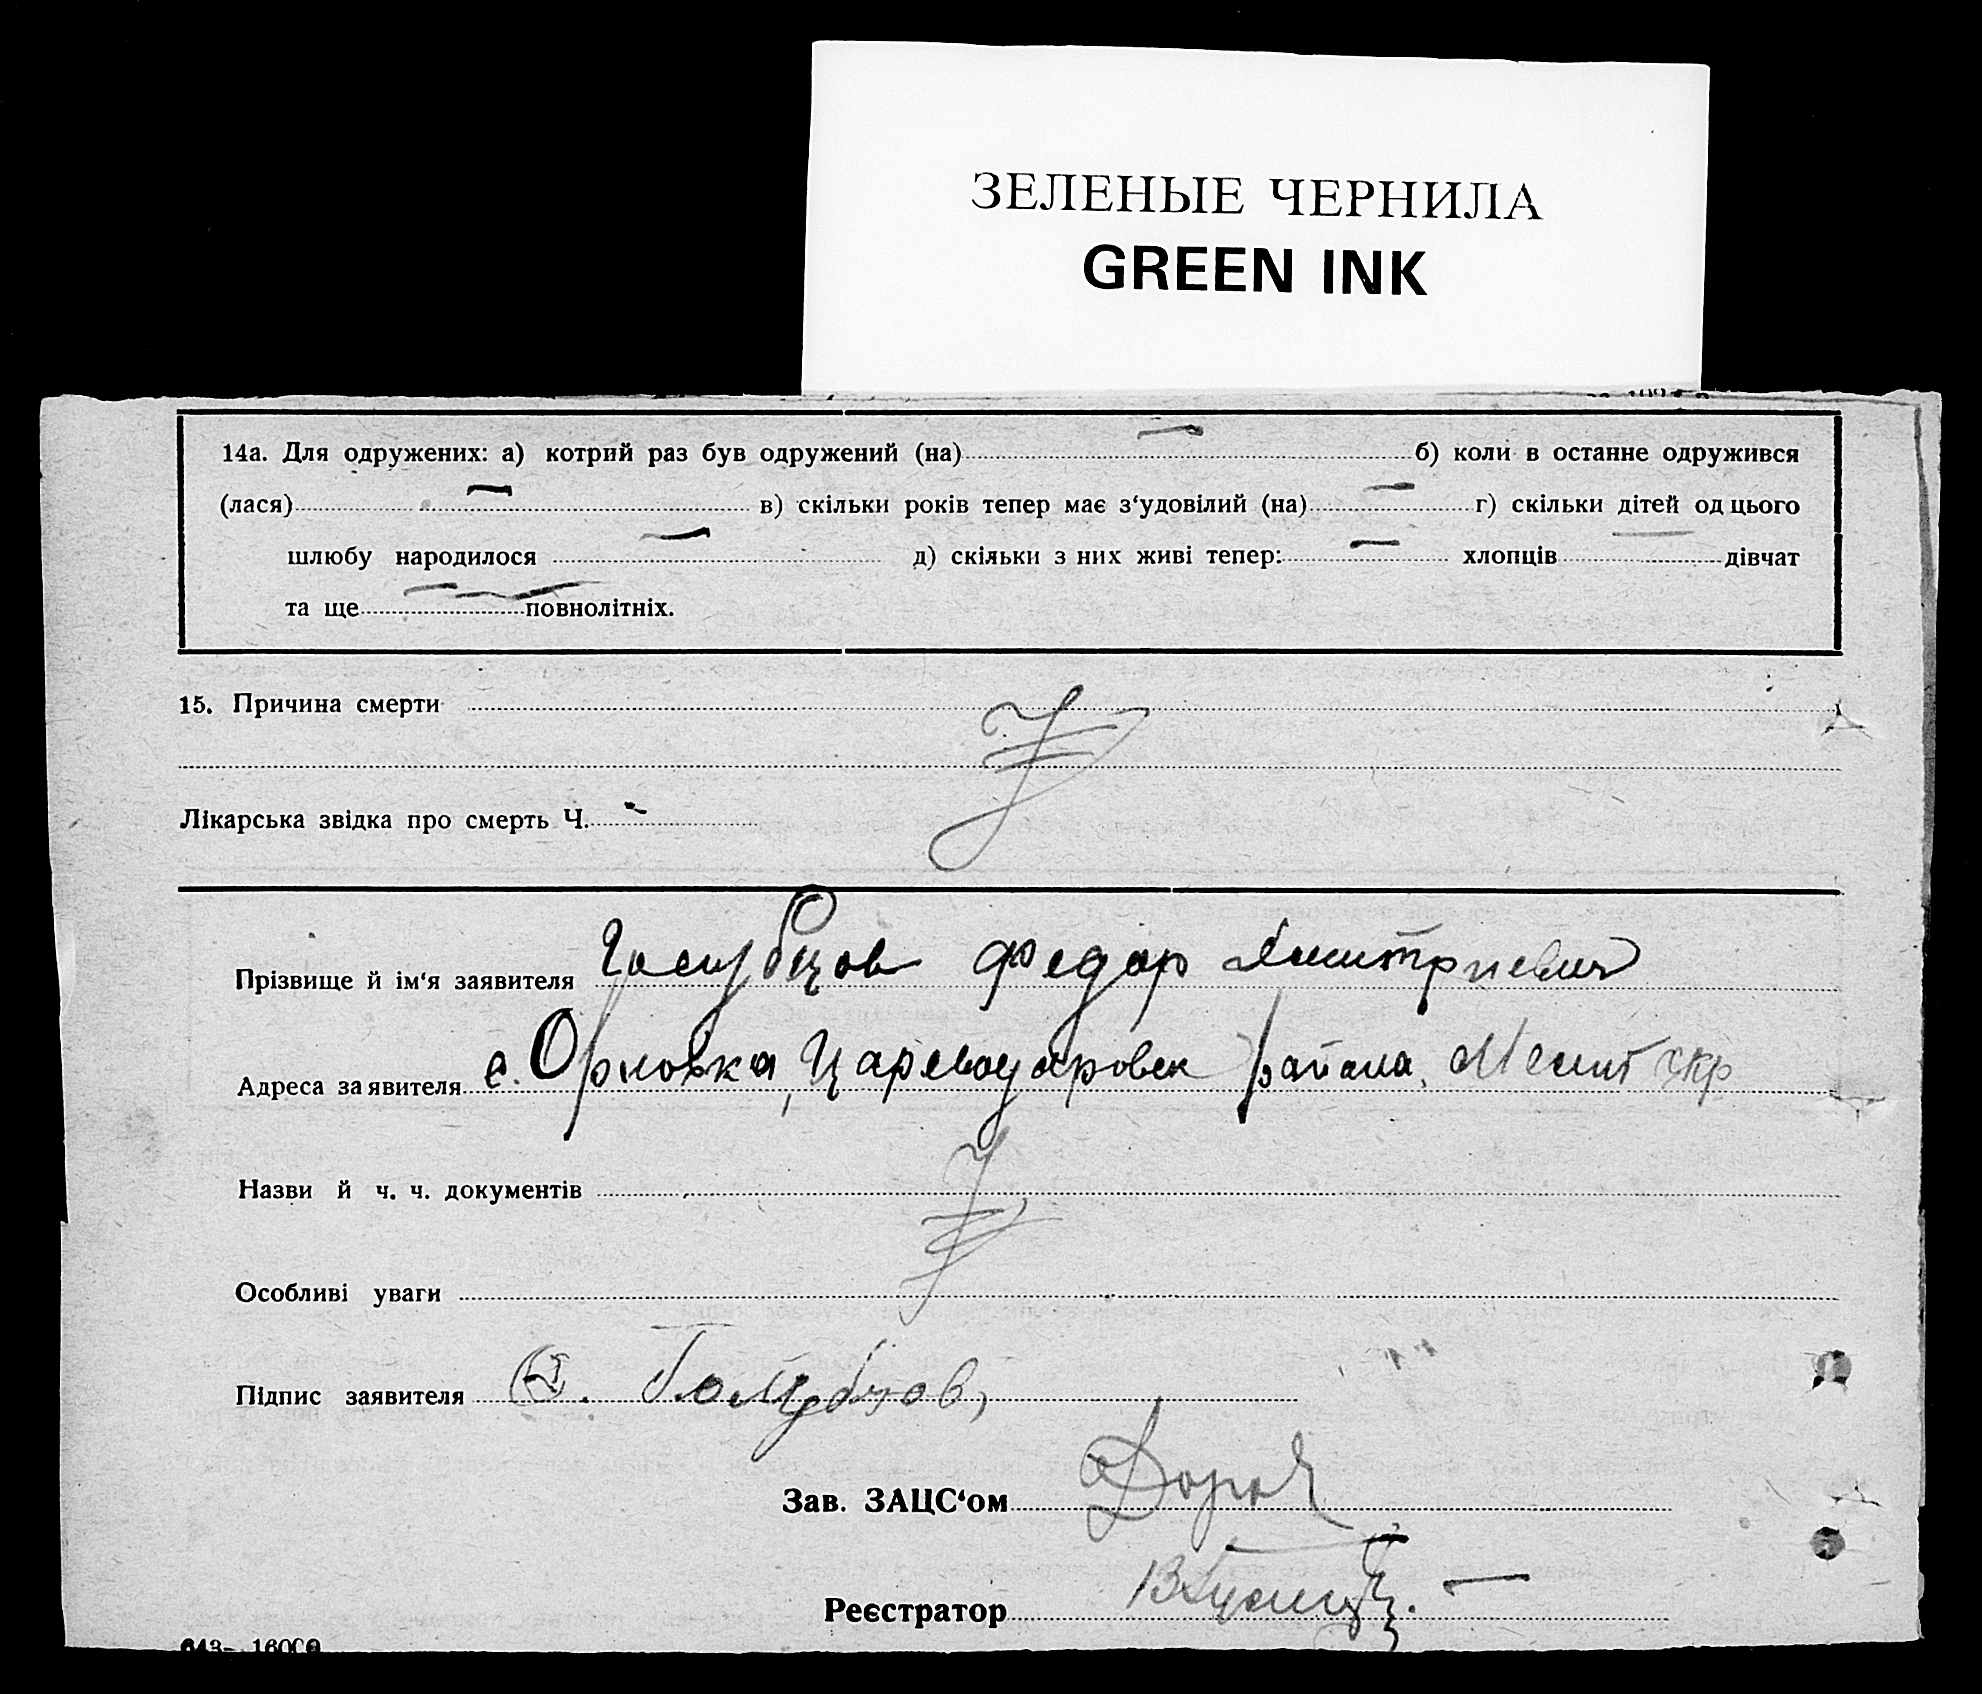 ЗЕЛЕНЫЕ ЧЕРНИЛА
GREEN INK
14а. Для одружених: а) котрий раз був одружений (на) — б) коли в останне одружився
(лася) — в) скільки років тепер має з‘удовілий (на) — г) скільки дітей од цього
шлюбу народилося — д) скільки з них живі тепер: — хлопців — дівчат
та ще — повнолітніх.
15. Причина смерти
Лікарська звідка про смерть Ч. -
Прізвище й ім‘я заявителя Голубцов Федор Дмитриевич
Адреса заявителя с. Орловка, района, Мелит окр
Назви й ч. ч. документів
Особливі уваги
Підпис заявителя Ф. Голубцов
Зав. ЗАЦС‘ом
Реєстратор
643— 16000